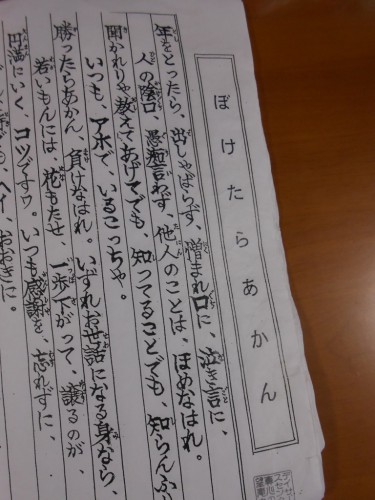 ぼけたらあかん
年をとったら、出しゃばらず、憎まれ口に、泣き言に、
人の陰口、愚痴言わず、他人のことは、ほめなはれ。
聞かれりゃ教えてあげてでも、知ってることでも、知らんふり
いつも、アホで、いるこっちゃ。
勝ったらあかん、負けなはれ。いずれお世話になる身なら、
若いもんには、花もたせ、一歩下がって、譲るのが、
円満にいく、コツですワ。いつも感謝を、忘れずに、
ヘイ、おおきに。